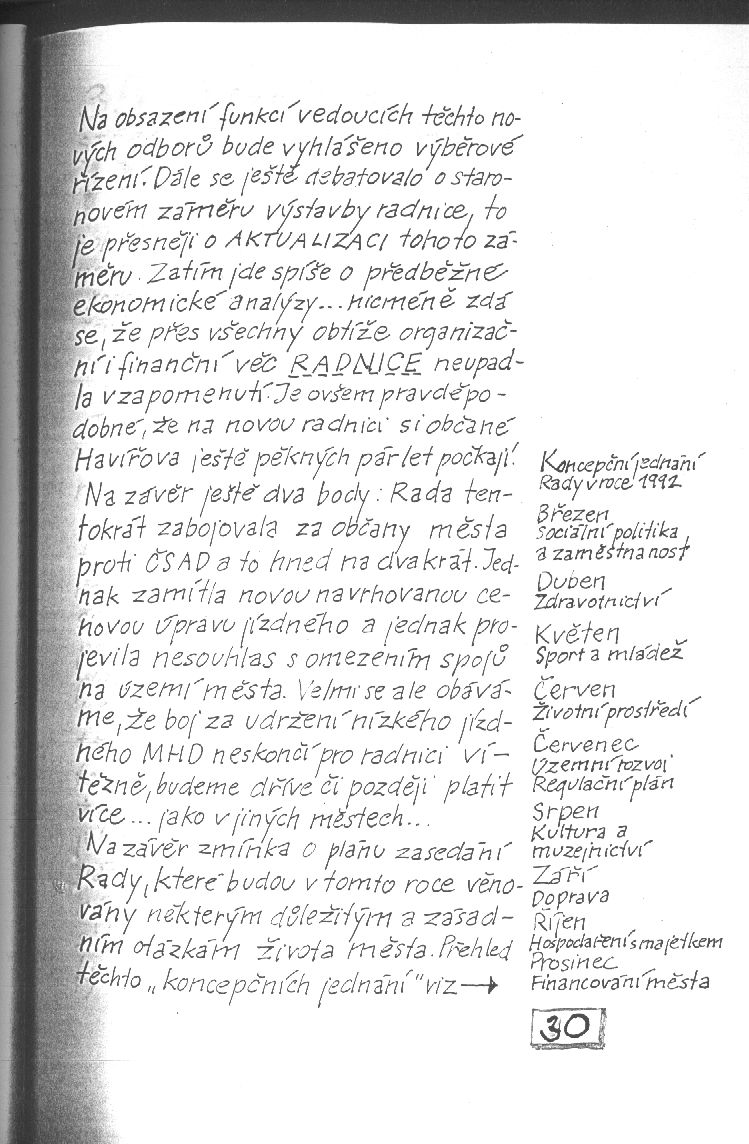 Na obsazení funkcí vedoucích těchto no-
vých odborů bude vyhlášeno výběrové
řízení. Dále se ještě debatovalo o staro-
novém záměru výstavby radnice, to
je přesněji o AKTUALIZACI tohoto zá-
měru. Zatím jde spíše o předběžné
ekonomické analýzy... nicméně zdá
se, že přes všechny obtíže organizač-
ní i finanční věc RADNICE neupad-
la v zapomenutí. Je ovšem pravděpo-
dobné, že na novou radnici si občané
Havířova ještě pěkných pár let počkají!
Na závěr ještě dva body: Rada ten-
tokrát zabojovala za občany města
proti ČSAD a to hned na dvakrát. Jed-
nak zamítla novou navrhovanou ce-
novou úpravu jízdného a jednak pro-
jevila nesouhlas s omezením spojů
na území města. Velmi se ale obává-
me, že boj za udržení nízkého jízd-
ného MHD neskončí pro radnici ví-
tězně, budeme dříve či později platit
více... jako v jiných městech...
Na závěr zmínka o plánu zasedání
Rady, které budou v tomto roce věno-
vány některým důležitým a zásad-
ním otázkám života města. Přehled
těchto „koncepčních jednání" viz →
Koncepční jednání
Rady v roce 1992
Březen
Sociální politika
a zaměstnanost
Duben
Zdravotnictví
Květen
Sport a mládež
Červen
Životní prostředí
Červenec
Územní rozvoj
Regulační plán
Srpen
Kultura a
muzejnictví
Září
Doprava
Říjen
Hospodaření s majetkem
Prosinec
Financování města
30